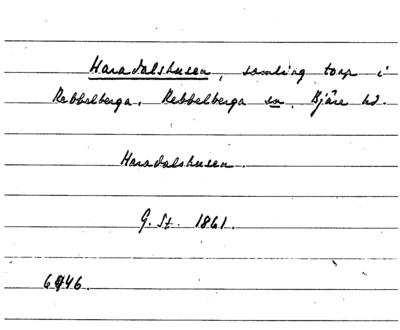 Haradalshusen, samling torp i
Rebbelberga, Rebbelberga sn. Bjäre hd.
Haradalshusen.
G. St. 1861.